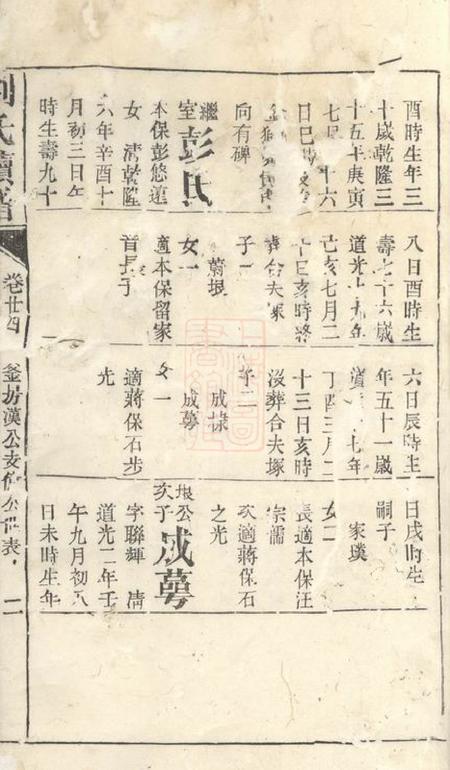 酉時生年三
十歲乾隆三
十五年庚寅
七月十六
日巳時
向有碑
繼室彭氏
本保彭悠蓮
女 清乾隆
六年辛酉十
月初三日午
時生壽九十
八日酉時生
壽七十六歲
道光十九年
己亥七月二
十日亥時
葬合夫冢
子一
蘭垠
女一
適本保留家
音長子
六日辰時生
年五十一歲
道 七年
丁酉三月二
十三日亥時
沒葬合夫塚
子二
成棣
成蕚
女一
適蔣保石步
光
日戌時生
嗣子
家璞
女二
長適本保汪
宗儒
次適蔣保石
之光
垠公次子成蕚
字聯輝 清
道光二年壬
午九月初八
日未時生年
氏續譜
卷廿四
釜房漢公支 公世表
二